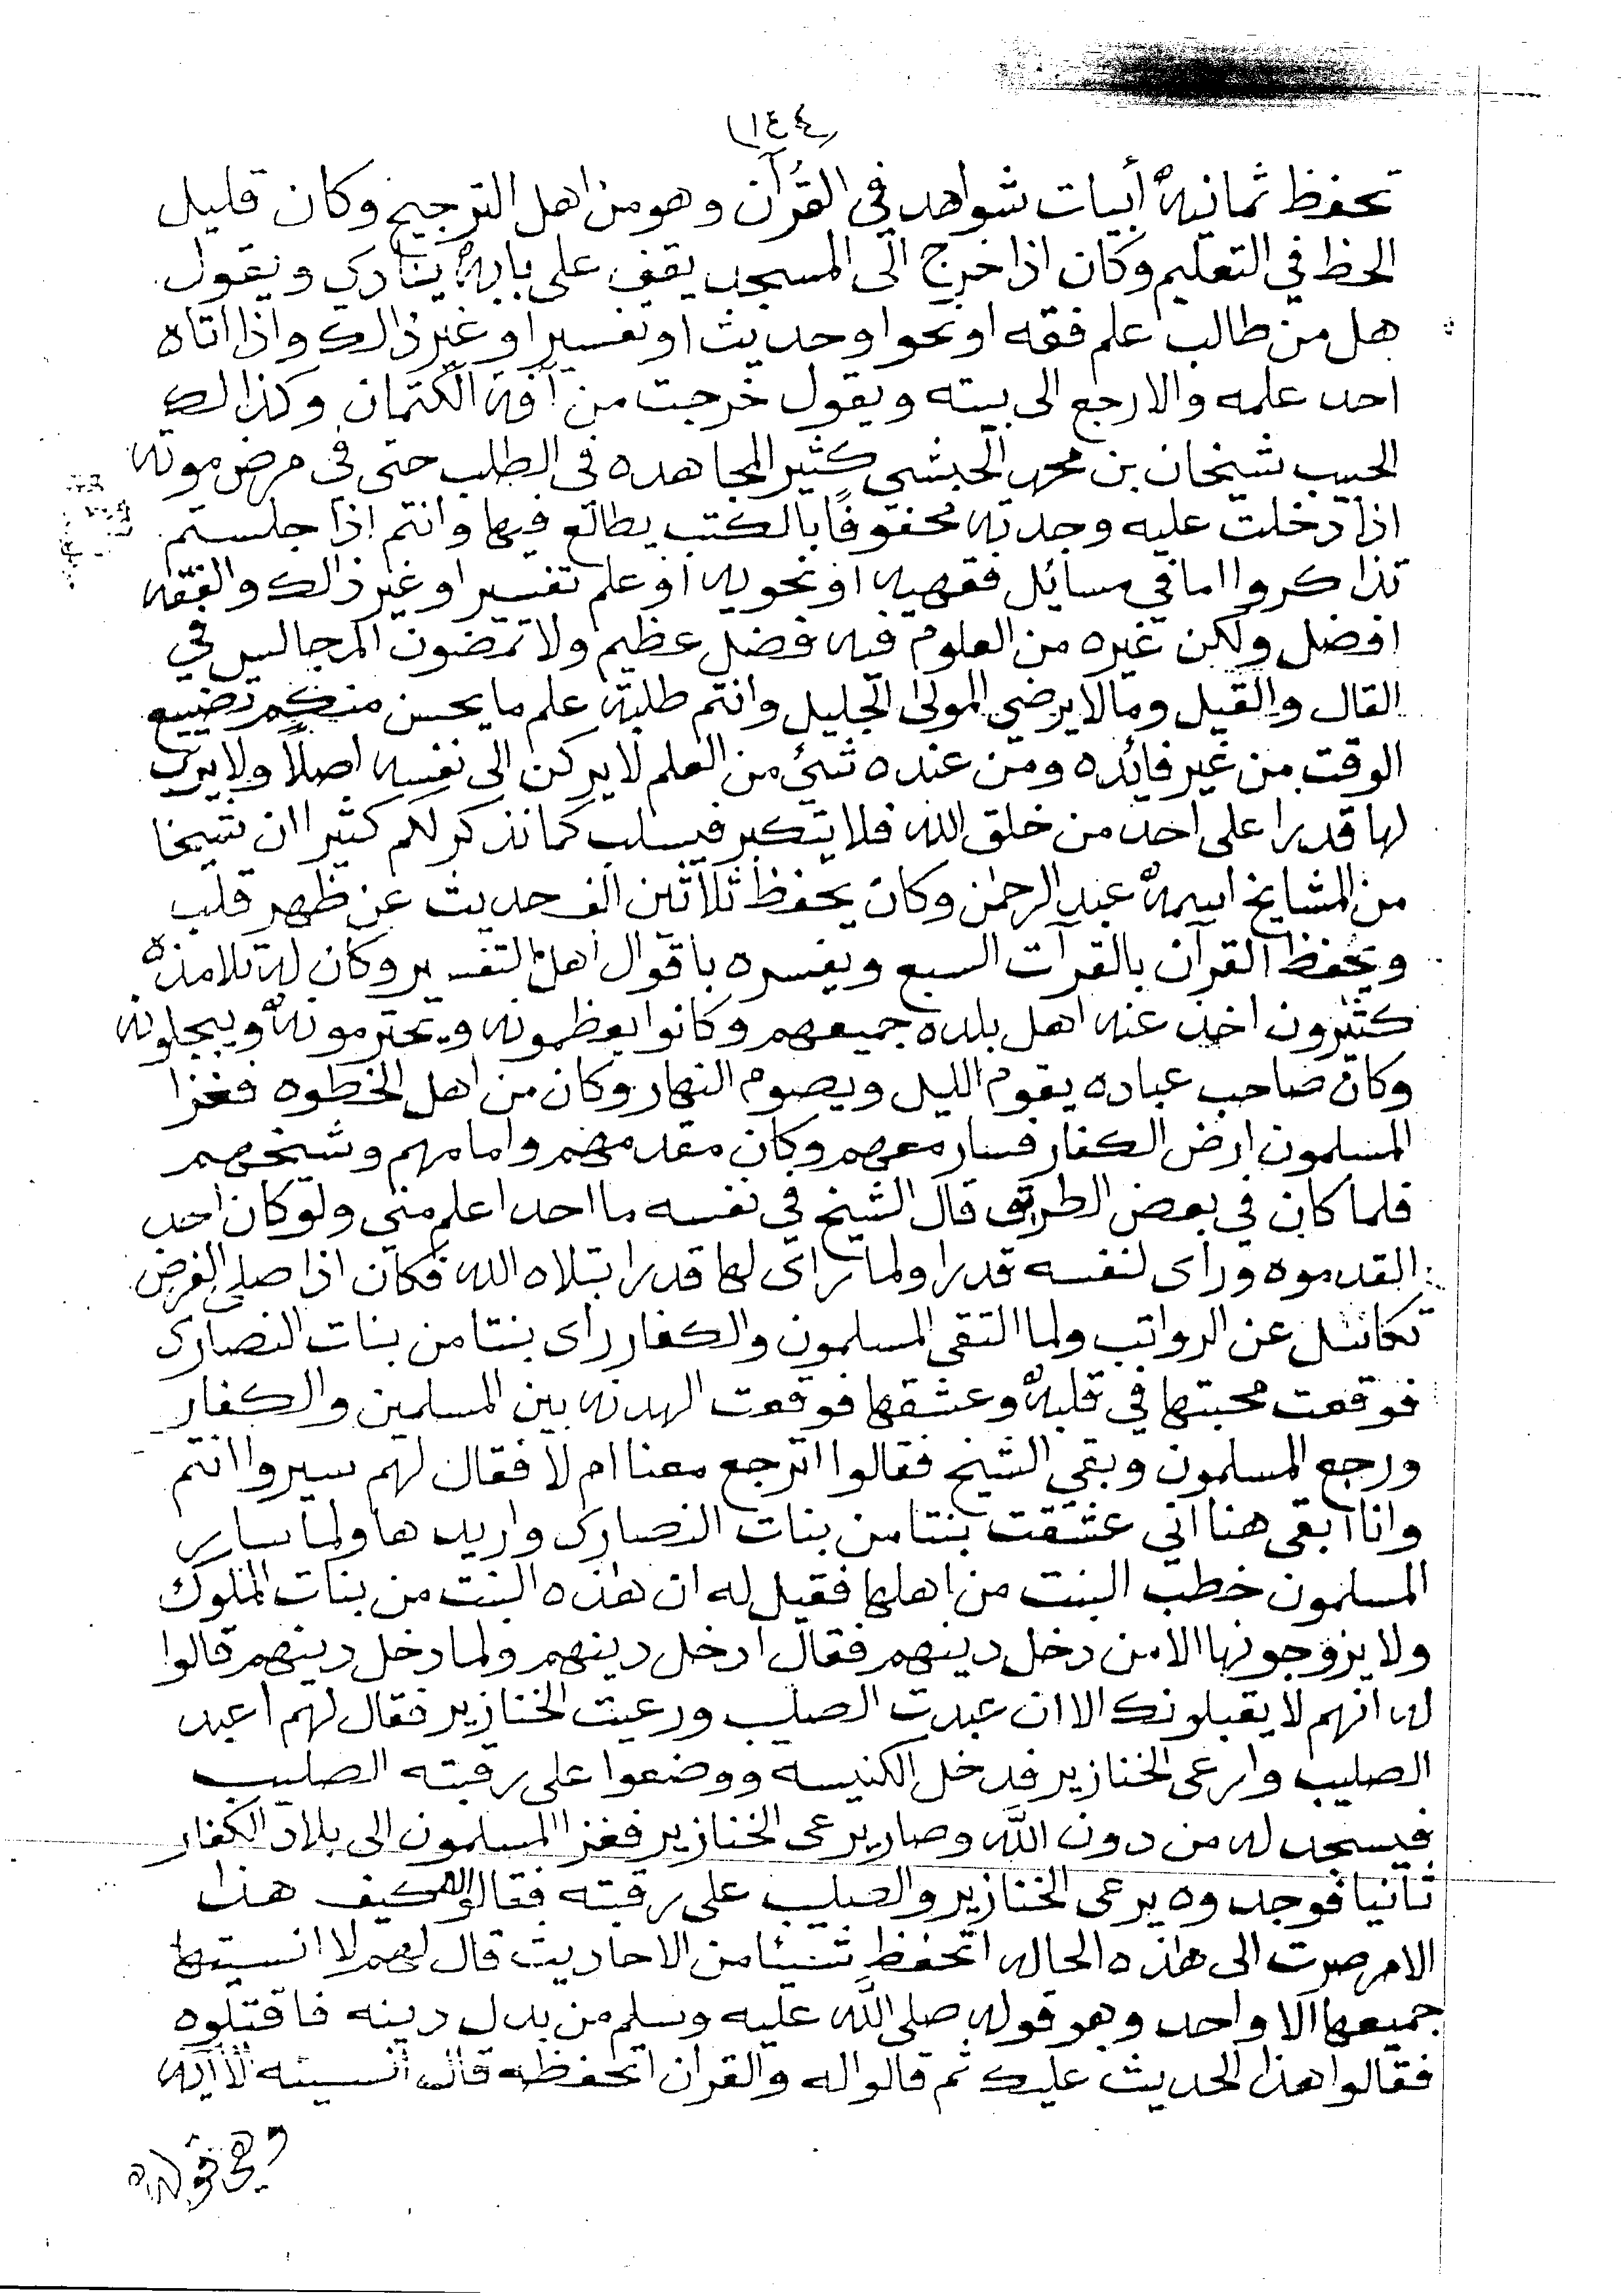 (١٤٤)
تحفظ ثمانية أبيات شواهد في القُرآن وهو من اهل الترجيح وكان قليل
الحظ في التعليم وكان اذا خرج الى المسجد يقف على بابه ينادي ويقول
هل من طالب علم فقه او نحو او حديث او تفسير او غير ذالك واذا اتاه
احد علمه والا رجع الى بيته ويقول خرجت من آفة الكتمان وكذالك
الحبيب شيخان بن محمد الحبشي كثير المجاهده في الطلب حتى في مرض موته
اذا دخلت عليه وجدته محفوفًا بالكتب يطالع فيها وانتم اذا جلستم
تذاكروا اما في مسائل فقهيه او نحويه او علم تفسير او غير ذالك والفقه
افضل ولكن غيره من العلوم فيه فضل عظيم ولا تمضون المجالس في
القال والقيل ومالا يرضي المولى الجليل وانتم طلبة علم ما يحسن منكم تضييع
الوقت من غير فائده ومن عنده شيء من العلم لا يركن الى نفسه اصلاً ولا يرى
لها قدرا على احد من خلق الله فلا يتكبر فيسلب كما نذكر لكم كثيرا ان شيخا
من المشايخ اسمه عبد الرحمٰن وكان يحفظ ثلاثين الف حديث عن ظهر قلب
ويحفظ القرآن بالقرآت السبع ويفسره باقوال اهل التفسير وكان له تلامذه
كثيرون اخذ عنه اهل بلده جميعهم وكانوا يعظمونه ويحترمونه ويبجلونه
وكان صاحب عباده يقوم الليل ويصوم النهار وكان من اهل الخطوه فغزا
المسلمون ارض الكفار فسار معهم وكان مقدمهم وامامهم وشيخهم
فلما كان في بعض الطريق قال الشيخ في نفسه ما احد اعلم مني ولو كان احد
لقدموه ورأى لنفسه قدرا ولما رآى لها قدرا بتلاه الله فكان اذا صلى الفرض
تكاسل عن الرواتب ولما التقى المسلمون والكفار رأى بنتا من بنات النصارى
فوقعت محبتها في قلبه وعشقها فوقعت الهدنه بين المسلمين والكفار
ورجع المسلمون وبقي الشيخ فقالوا اترجع معنا ام لا فقال لهم سيروا انتم
وانا ابقى هنا اني عشقت بنتا من بنات النصارى واريدها ولما سار
المسلمون خطب البنت من اهلها فقيل له ان هٰذه البنت من بنات الملوك
ولا يزوجونها الا من دخل دينهم فقال ادخل دينهم ولما دخل دينهم قالوا
له انهم لا يقبلونك الا ان عبدت الصليب ورعيت الخنازير فقال لهم اعبد
الصليب وارعى الخنازير فدخل الكنيسه ووضعوا على رقبته الصليب
فيسجد له من دون اللَّه وصار يرعى الخنازير فغزا المسلمون الى بلاد الكفار
ثانيا فوجدوه يرعى الخنازير والصليب على رقبته فقالوا له كيف هذا
الامر صرت الى هٰذه الحاله اتحفظ شيئا من الاحاديث قال لهم لا انسيتها
جميعها الا واحد وهو قوله صلى اللَّه عليه وسلم من بدل دينه فاقتلوه
فقالوا هذا الحديث عليك ثم قالوا له والقرآن اتحفظه قال انسيته الا آيه
وهي قوله